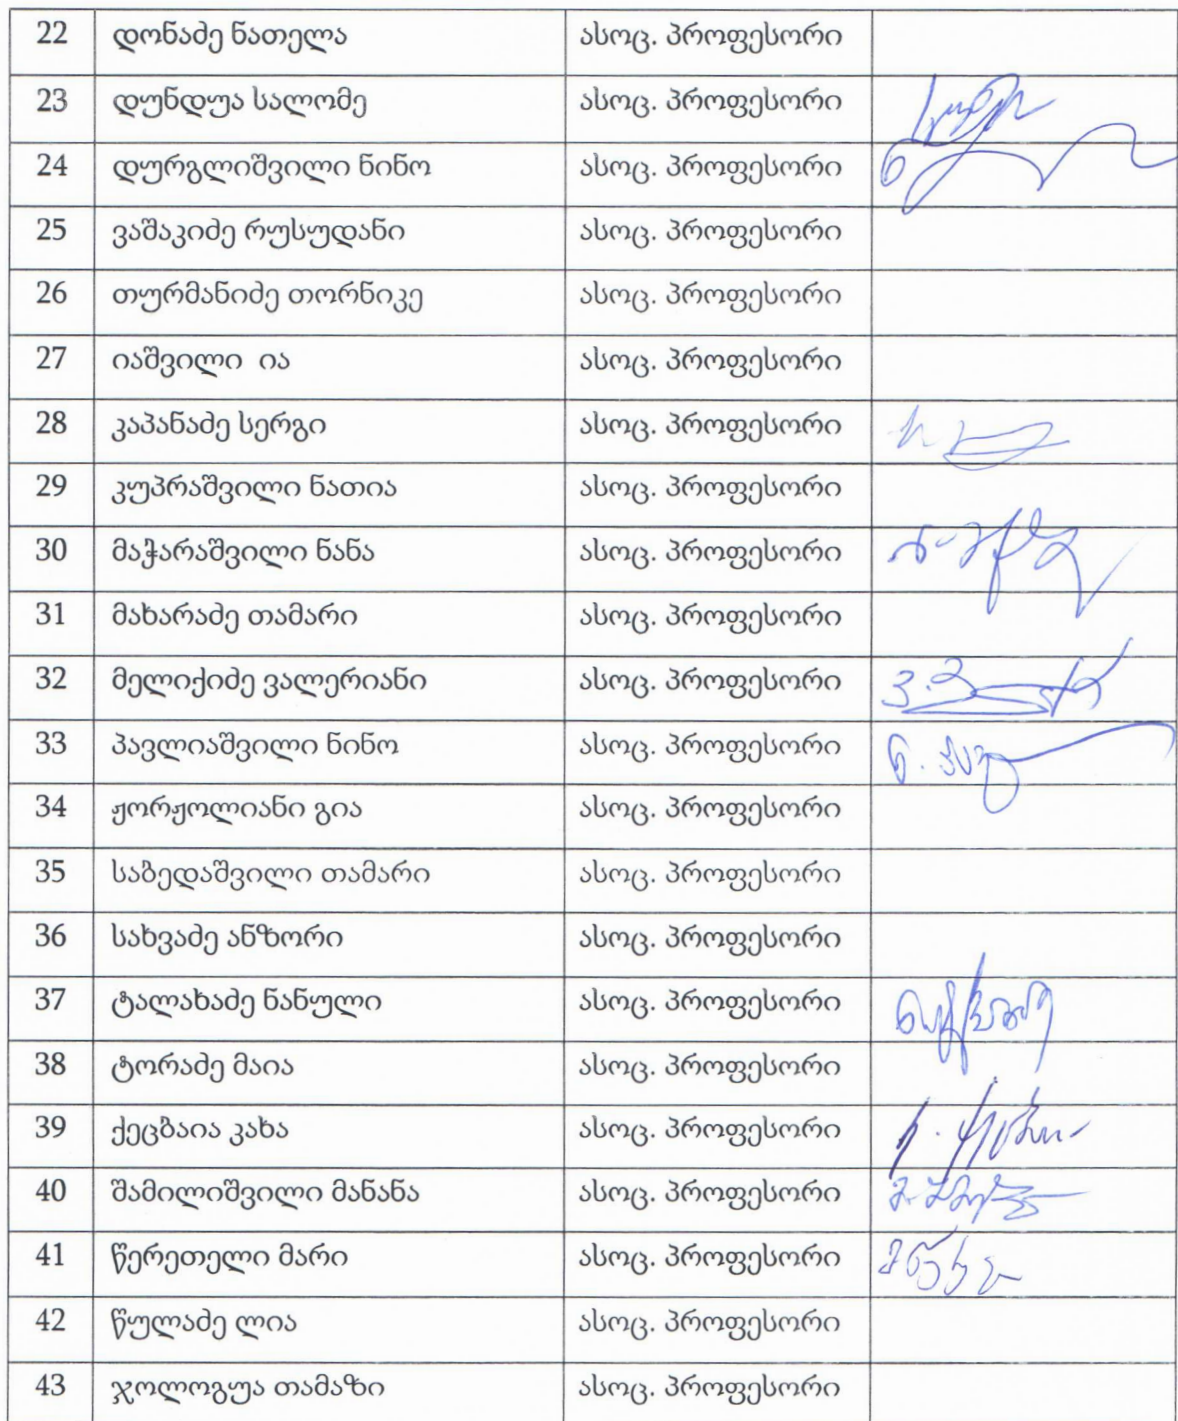 22 დონაძე ნათელა ასოც. პროფესორი
23 დუნდუა სალომე ასოც. პროფესორი
24 დურგლიშვილი ნინო ასოც. პროფესორი
25 ვაშაკიძე რუსუდანი ასოც. პროფესორი
26 თურმანიძე თორნიკე ასოც. პროფესორი
27 იაშვილი ია ასოც. პროფესორი
28 კაპანაძე სერგი ასოც. პროფესორი
29 კუპრაშვილი ნათია ასოც. პროფესორი
30 მაჭარაშვილი ნანა ასოც. პროფესორი
31 მახარაძე თამარი ასოც. პროფესორი
32 მელიქიძე ვალერიანი ასოც. პროფესორი
33 პავლიაშვილი ნინო ასოც. პროფესორი
34 ჟორჟოლიანი გია ასოც. პროფესორი
35 საბედაშვილი თამარი ასოც. პროფესორი
36 სახვაძე ანზორი ასოც. პროფესორი
37 ტალახაძე ნანული ასოც. პროფესორი
38 ტორაძე მაია ასოც. პროფესორი
39 ქეცბაია კახა ასოც. პროფესორი
40 შამილიშვილი მანანა ასოც. პროფესორი
41 წერეთელი მარი ასოც. პროფესორი
42 წულაძე ლია ასოც. პროფესორი
43 ჯოლოგუა თამაზი ასოც. პროფესორი